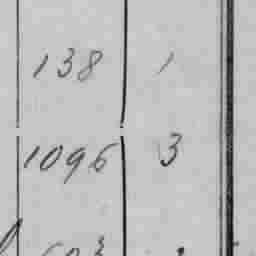 138 1
1096 3